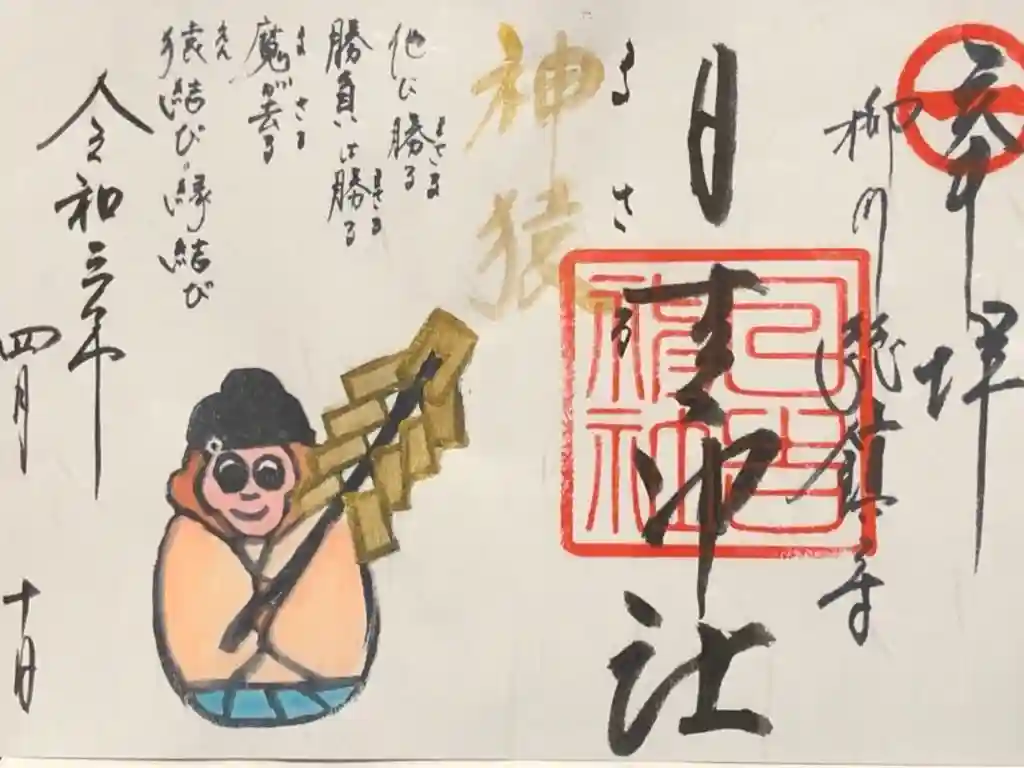 奉拝
柳川総鎮守
日吉神社
日吉神社
まさる
神猿
他に勝る
まさる
勝負に勝る
まさる
魔が去る
ま さる
猿結び・縁結び
えん
令和三年
四月
十日